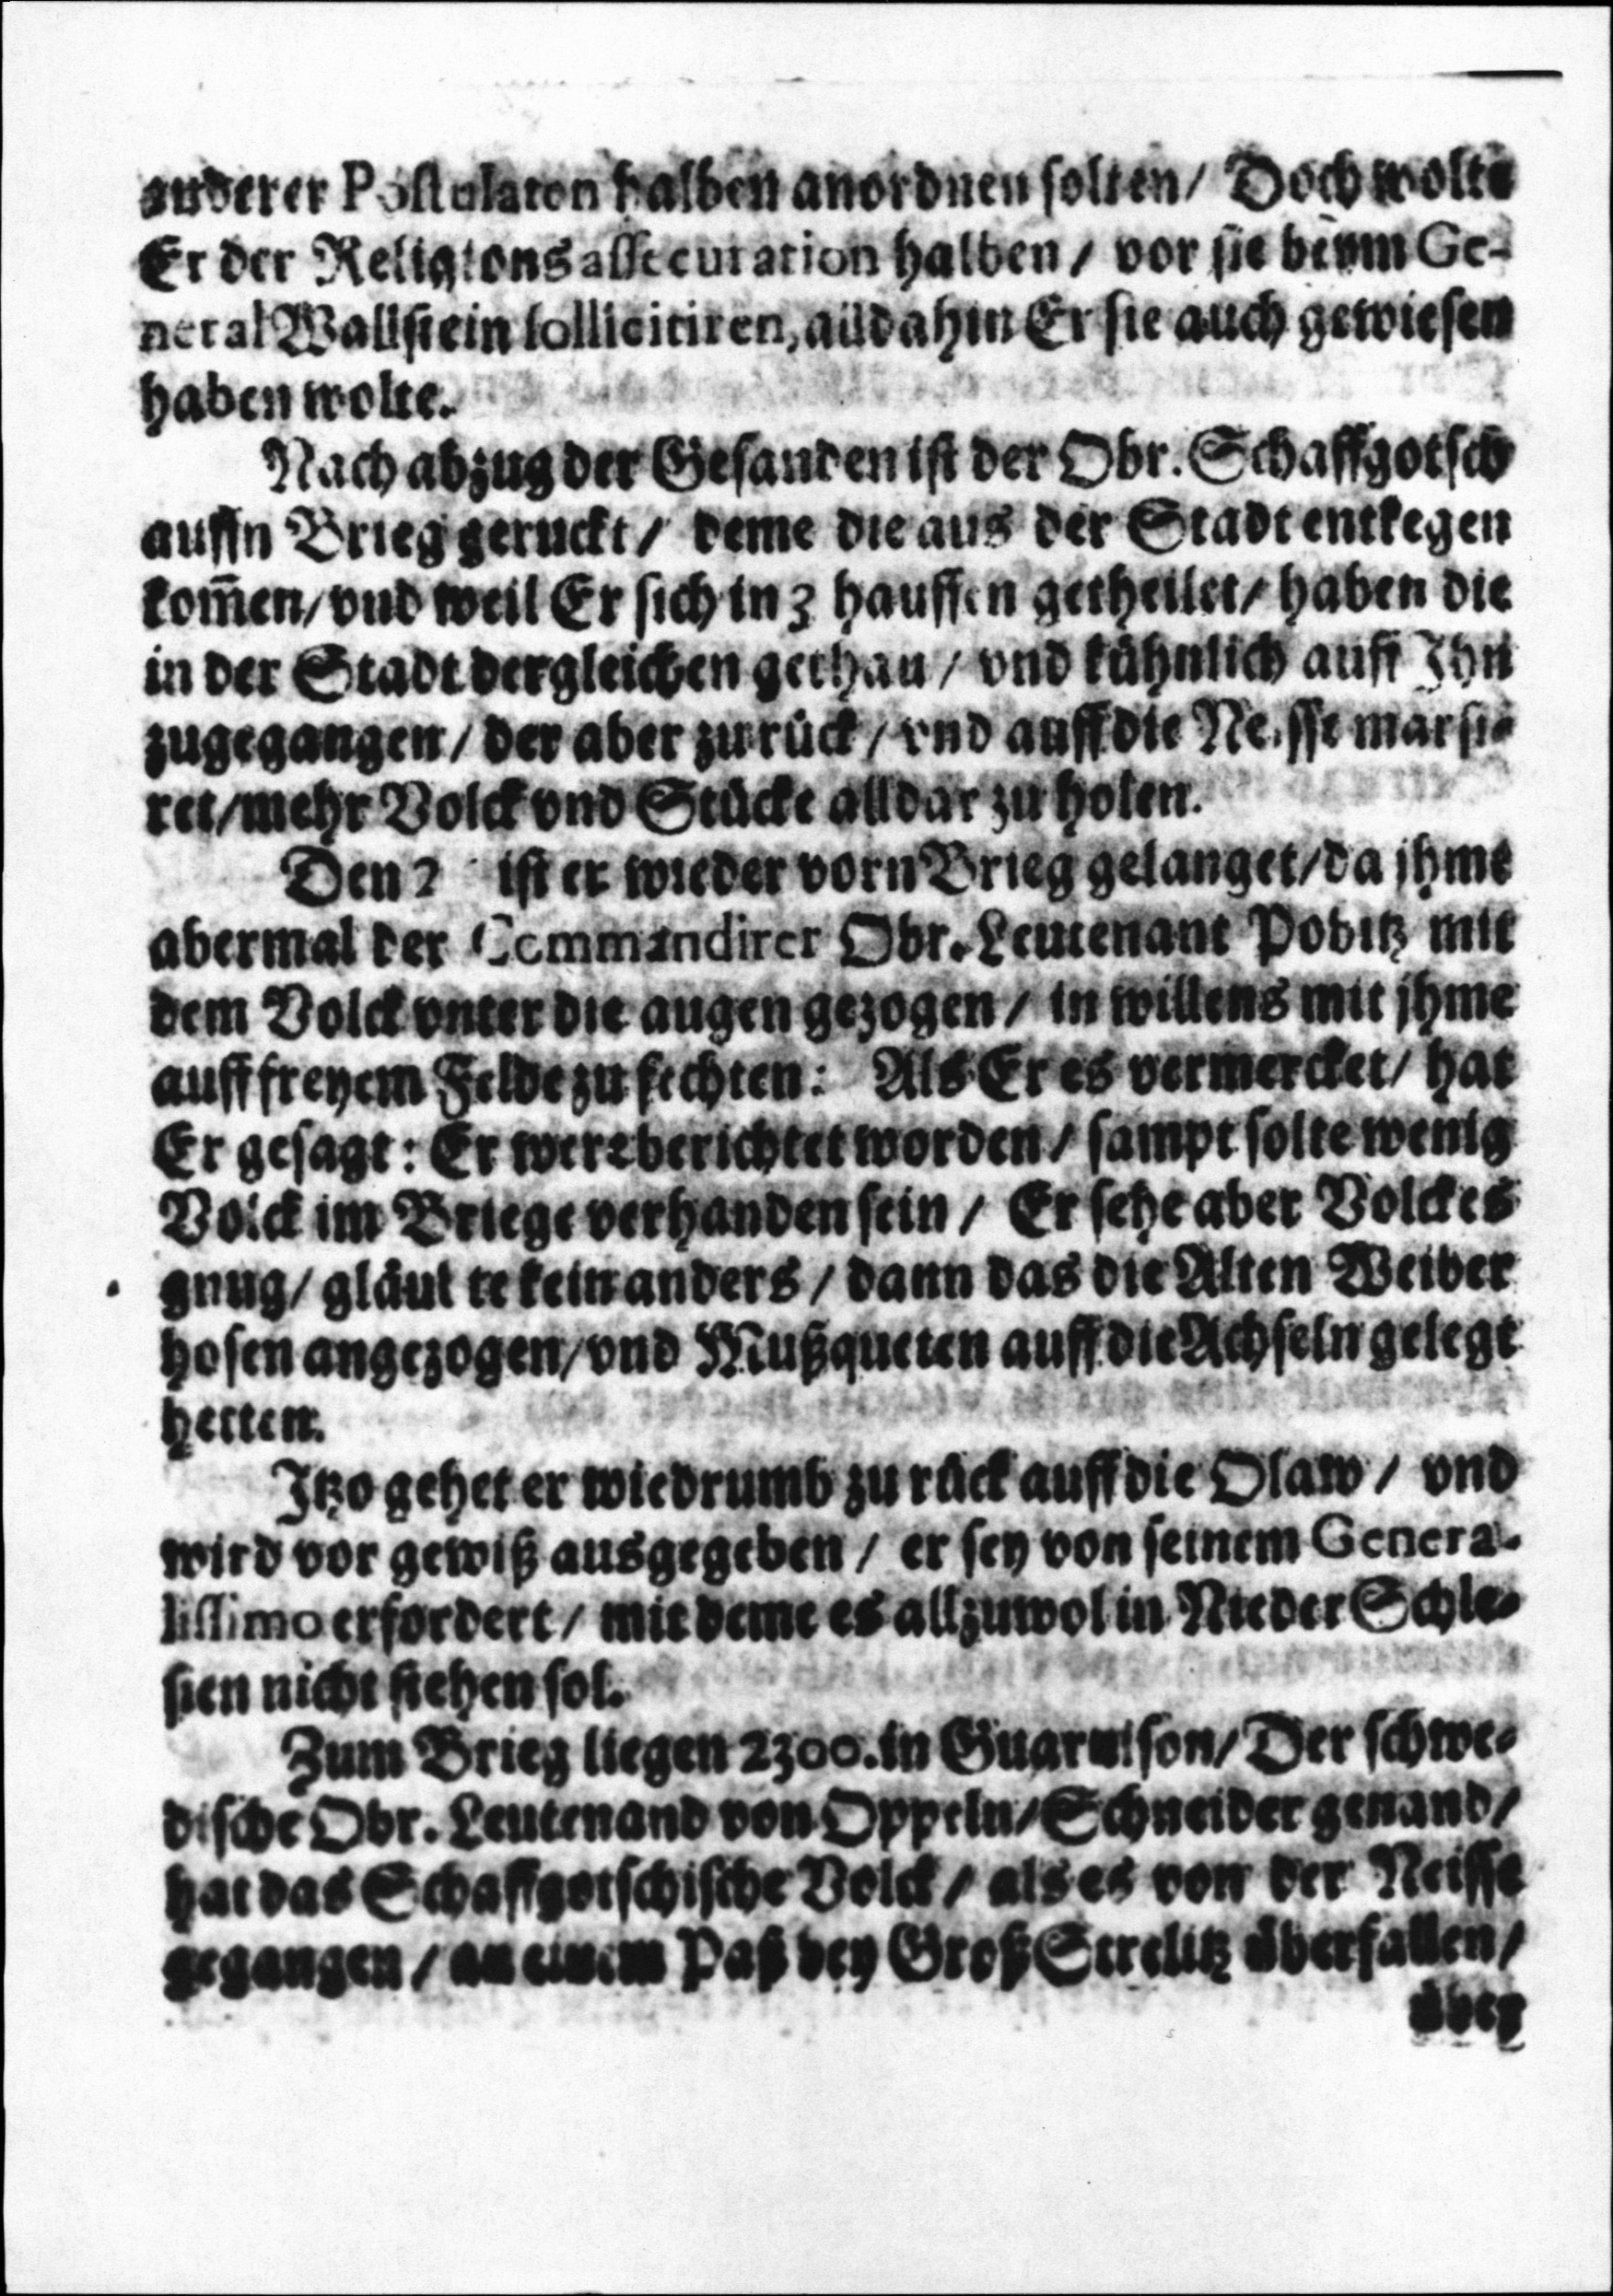 anderer Postulaten halben anordnen solten/ Doch wolte
Er der Religions assecuration halben/ vor sie beym Ge-
neral Wallstein sollicitiren, alldahin Er sie auch gewiesen
haben wolte.
Nach abzug der Gesanden ist der Obr. Schaffgotsch
auffn Brieg geruckt/ deme die aus der Stadt entkegen
kom̃en/ vnd weil Er sich in 3 hauffen getheilet/ haben die
in der Stadt dergleichen gethan/ vnd kühnlich auff Ihn
zugegangen/ der aber zurück/ vnd auff die Neisse marsie-
ret/ mehr Volck vnd Stücke alldar zu holen.
Den 2 ist er wieder vorn Brieg gelanget/ da jhme
abermal der Commandirer Obr. Leutenant Pobitz mit
dem Volck vnter die augen gezogen/ in willens mit jhme
auff freyem Felde zu fechten: Als Er es vermercket/ hat
Er gesagt: Er were berichtet worden/ sampt solte wenig
Volck im Briege verhanden sein/ Er sehe aber Volckes
gnug/ gläubte kein anders/ dann das die Alten Weiber
hosen angezogen/ vnd Mußqueten auff die Achseln gelegt
hetten.
Itzo gehet er wiedrumb zu rück auff die Olaw/ vnd
wird vor gewiß ausgegeben/ er sey von seinem Genera-
lissimo erfordert/ mit deme es allzuwol in Nieder Schle-
sien nicht stehen sol.
Zum Brieg liegen 2300. in Guarnison/ Der schwe-
dische Obr. Leutenand von Oppeln/ Schneider genand/
hat das Schaffgotschische Volck/ als es von der Neisse
gegangen/ an einem Paß bey Groß Strelitz überfallen/
über